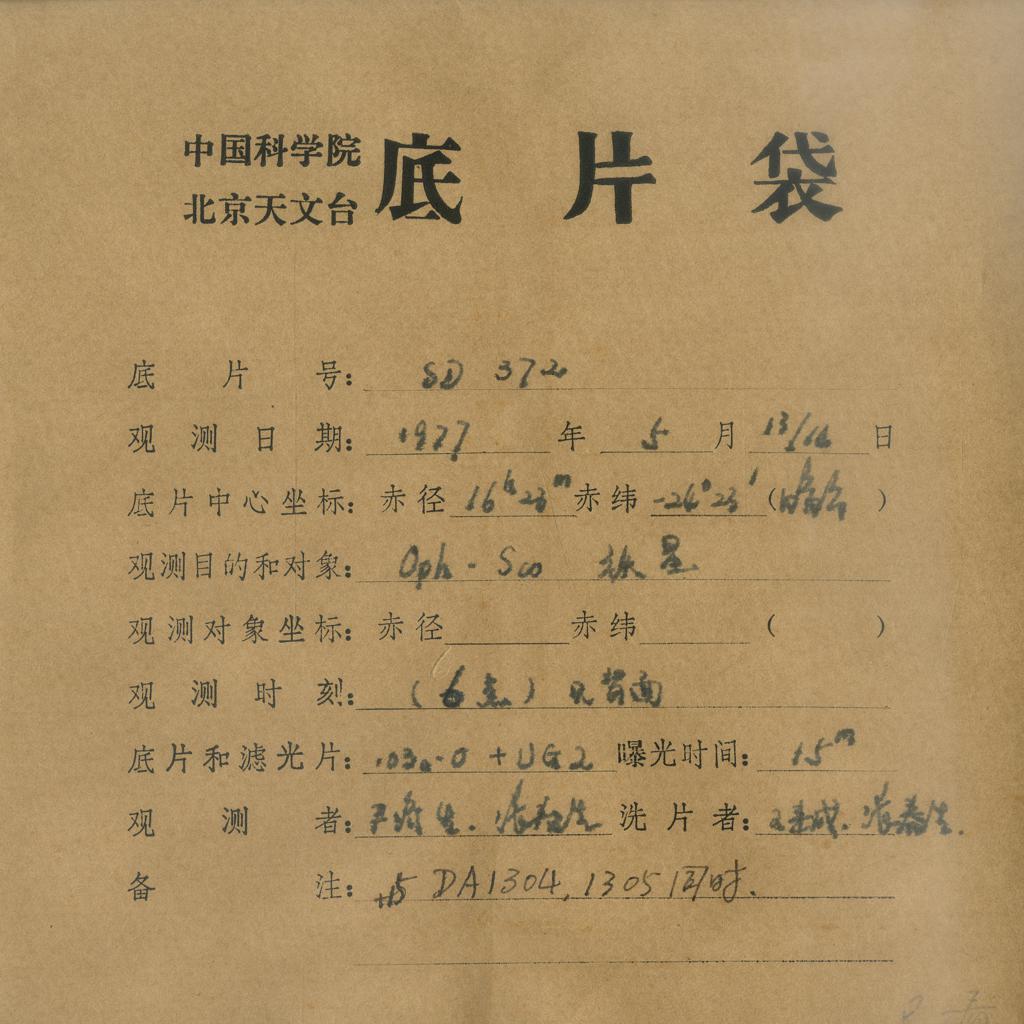 中国科学院
北京天文台
底片袋
底片号: SD 372
观测日期: 1977 年 5 月 13/14 日
底片中心坐标: 赤径 16h 23m 赤纬 -26° 23′ ( )
观测目的和对象: Oph - Sco 星
观测对象坐标: 赤径 赤纬 ( )
观测时刻: (6点) 见背面
底片和滤光片: 103a-O + UG2 曝光时间: 15m
观测者: 洗片者:
备注: 与 DA1304, 1305 同时.